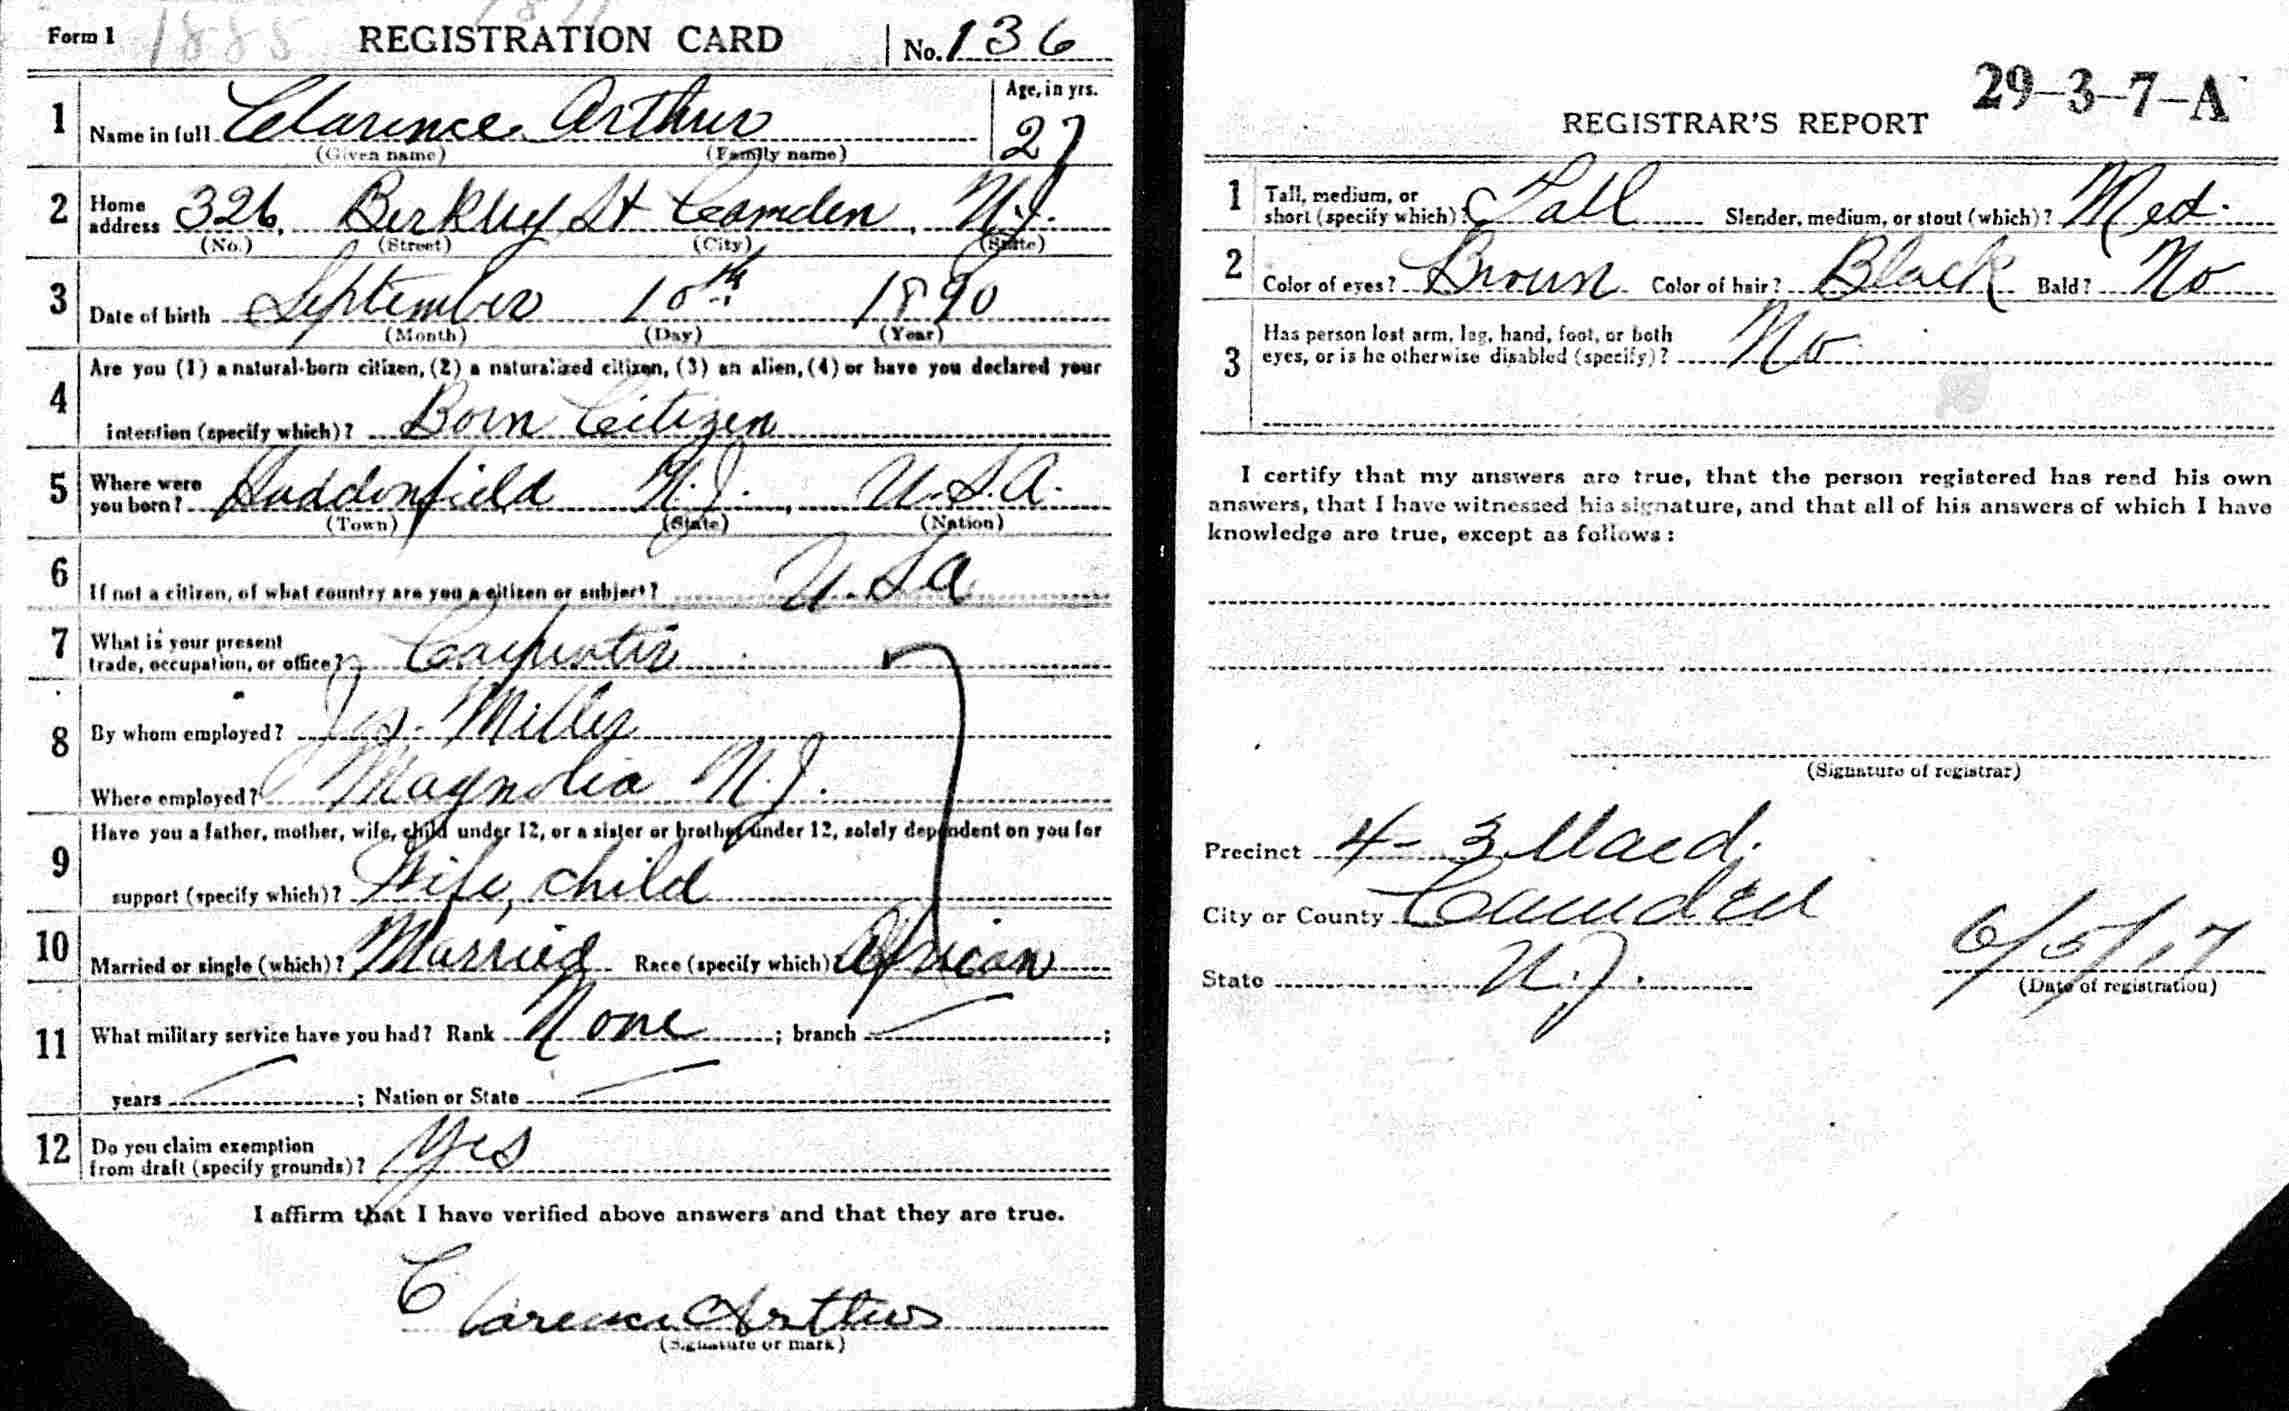 Form 1 1885 REGISTRATION CARD No. 136
1 Name in full Clarence Arthur Age, in yrs. 27
(Given name) (Family name)
2 Home address 326, Berkley St Camden, N.J.
(No.) (Street) (City) (State)
3 Date of birth September 10th 1890
(Month) (Day) (Year)
4 Are you (1) a natural-born citizen, (2) a naturalized citizen, (3) an alien, (4) or have you declared your
intention (specify which)? Born Citizen
5 Where were you born? Haddonfield N.J., U.S.A.
(Town) (State) (Nation)
6 If not a citizen, of what country are you a citizen or subject? U.S.A
7 What is your present
trade, occupation, or office? Carpenter
8 By whom employed? Jos. Miller
Where employed? Magnolia N.J.
9 Have you a father, mother, wife, child under 12, or a sister or brother under 12, solely dependent on you for
support (specify which)? Wife, child
10 Married or single (which)? Married Race (specify which)? African
11 What military service have you had? Rank None ; branch ;
years ; Nation or State
12 Do you claim exemption
from draft (specify grounds)? Yes
I affirm that I have verified above answers and that they are true.
Clarence Arthur
(Signature or mark)
29-3-7-A
REGISTRAR'S REPORT
1 Tall, medium, or
short (specify which)? Tall Slender, medium, or stout (which)? Med.
2 Color of eyes? Brown Color of hair? Black Bald? No
3 Has person lost arm, leg, hand, foot, or both
eyes, or is he otherwise disabled (specify)? No
I certify that my answers are true, that the person registered has read his own
answers, that I have witnessed his signature, and that all of his answers of which I have
knowledge are true, except as follows:
(Signature of registrar)
Precinct 4-3 Ward.
City or County Camden
State N.J. 6/5/17
(Date of registration)